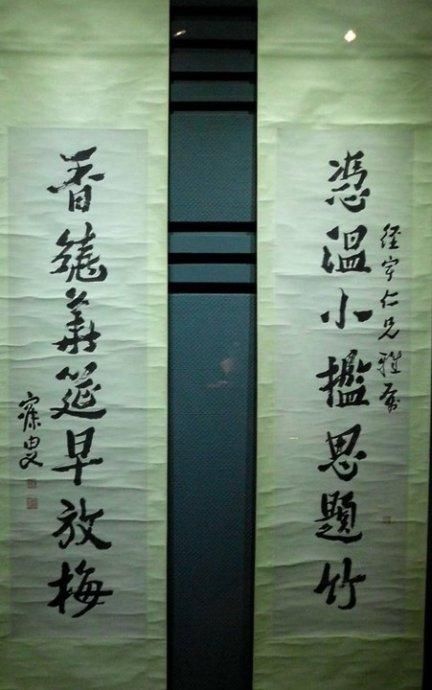 憑溫小檻思題竹
經宇仁兄雅屬
香繞華筵早放梅
寐叟